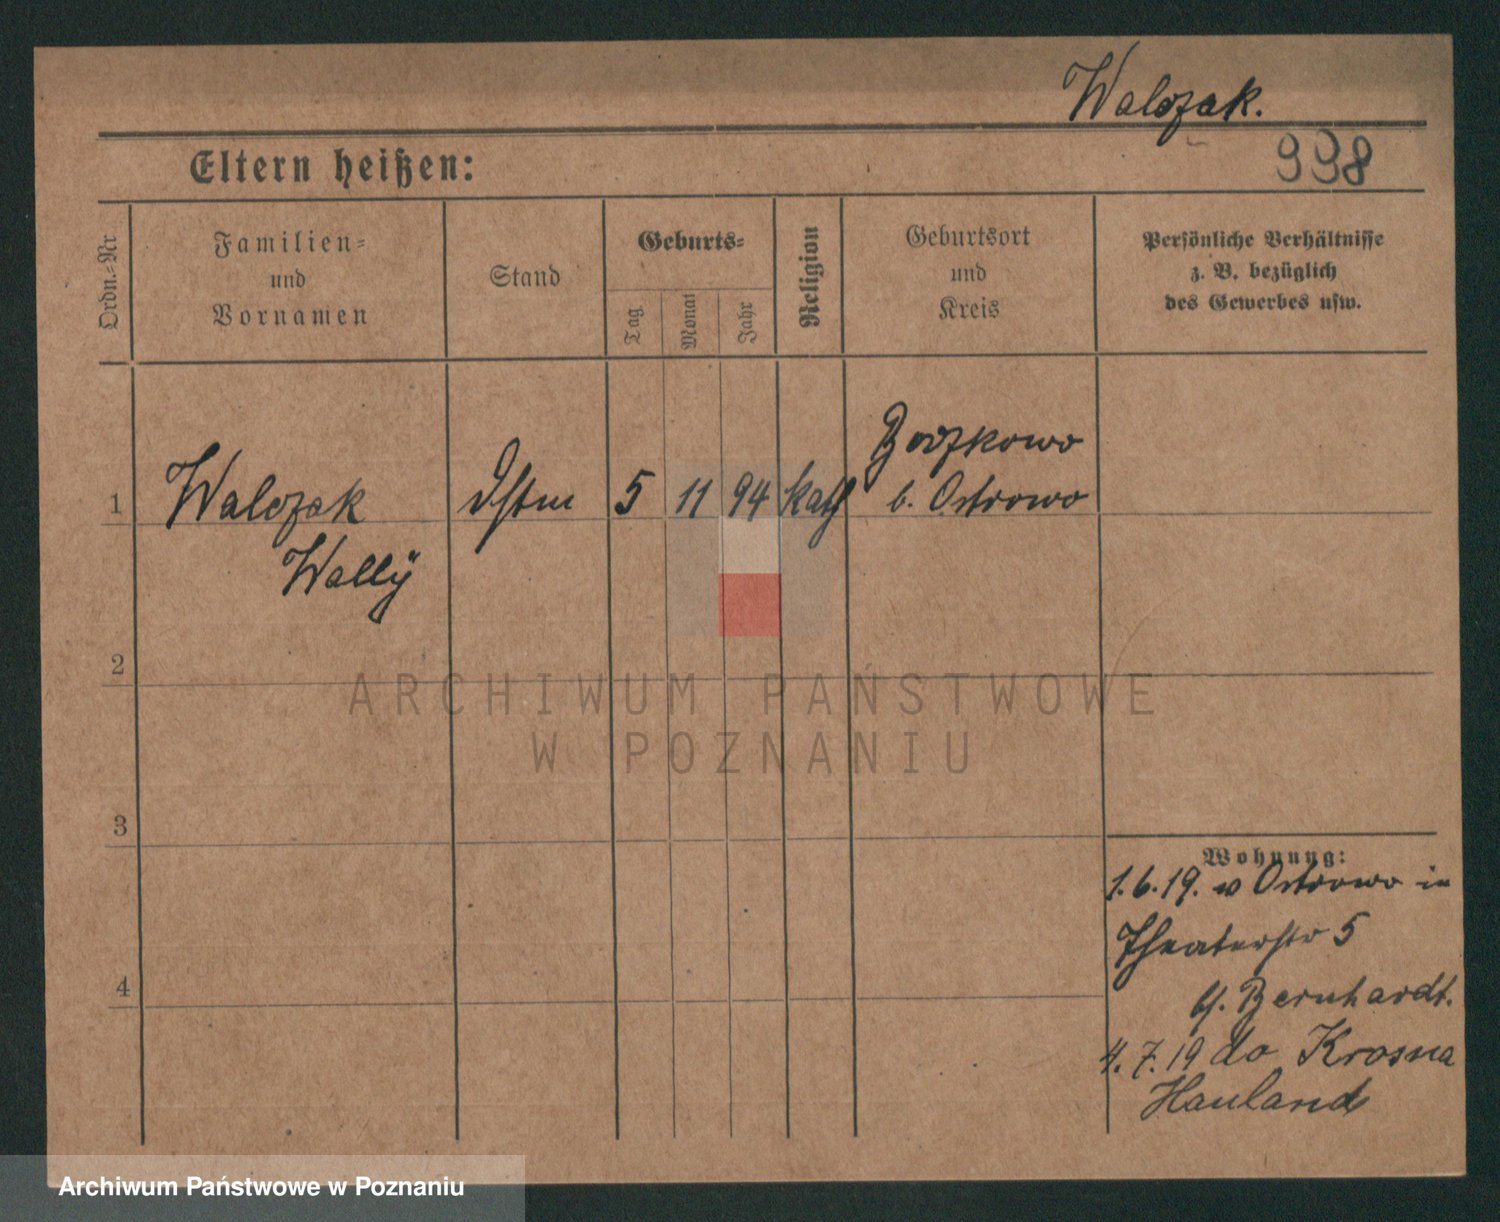 Walczak.
Eltern heißen:
998
Ordn.-Nr
Familien-
und
Vornamen
Stand
Geburts-
Tag
Monat
Jahr
Religion
Geburtsort
und
Kreis
Persönliche Verhältnisse
z. B. bezüglich
des Gewerbes usw.
1
Walczak
Wally
5
11
94
kath
b. Ostrowo
2
3
4
Wohnung:
1.6.19. w Ostrowo in
Theaterstr 5
b. Bernhardt.
4.7.19 do Krosna
Hauland
ARCHIWUM PAŃSTWOWE
W POZNANIU
Archiwum Państwowe w Poznaniu